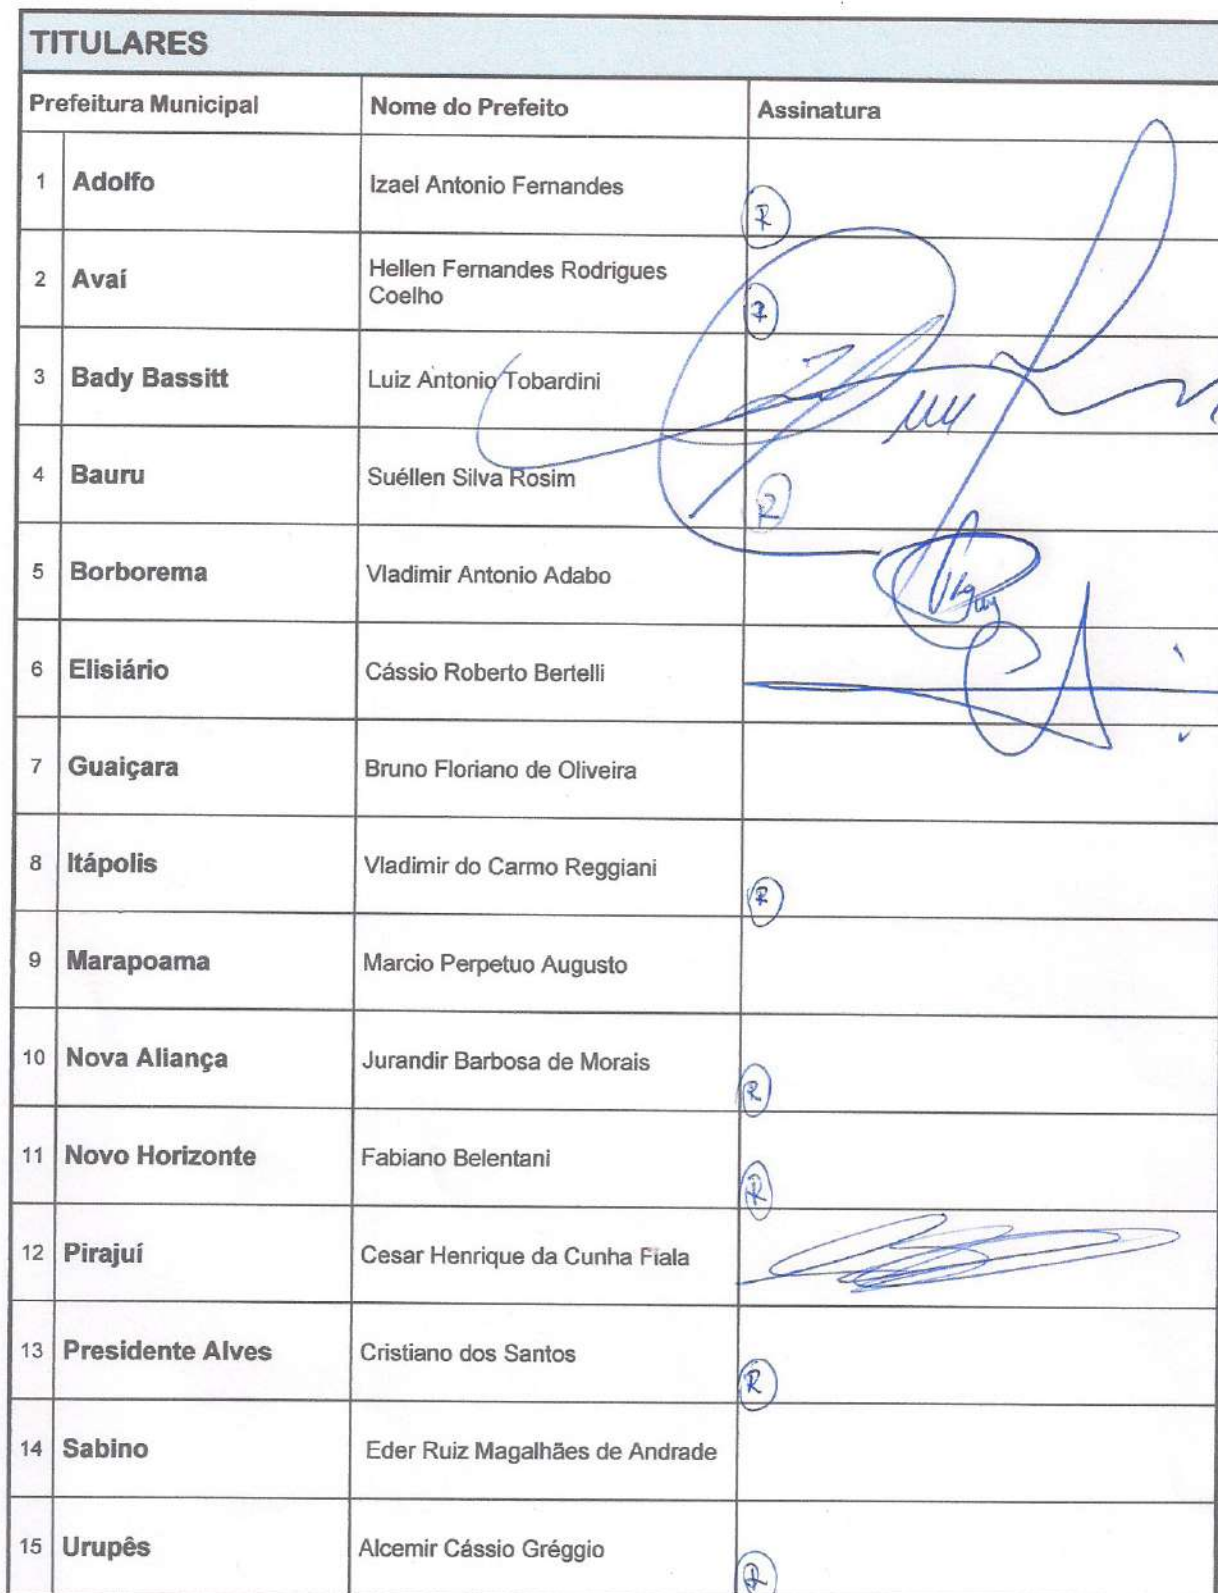 TITULARES
Prefeitura Municipal Nome do Prefeito Assinatura
1 Adolfo Izael Antonio Fernandes R
2 Avaí Hellen Fernandes Rodrigues
Coelho R
3 Bady Bassitt Luiz Antonio Tobardini
4 Bauru Suéllen Silva Rosim R
5 Borborema Vladimir Antonio Adabo
6 Elisiário Cássio Roberto Bertelli
7 Guaiçara Bruno Floriano de Oliveira
8 Itápolis Vladimir do Carmo Reggiani R
9 Marapoama Marcio Perpetuo Augusto
10 Nova Aliança Jurandir Barbosa de Morais R
11 Novo Horizonte Fabiano Belentani R
12 Pirajuí Cesar Henrique da Cunha Fiala
13 Presidente Alves Cristiano dos Santos R
14 Sabino Eder Ruiz Magalhães de Andrade
15 Urupês Alcemir Cássio Gréggio R